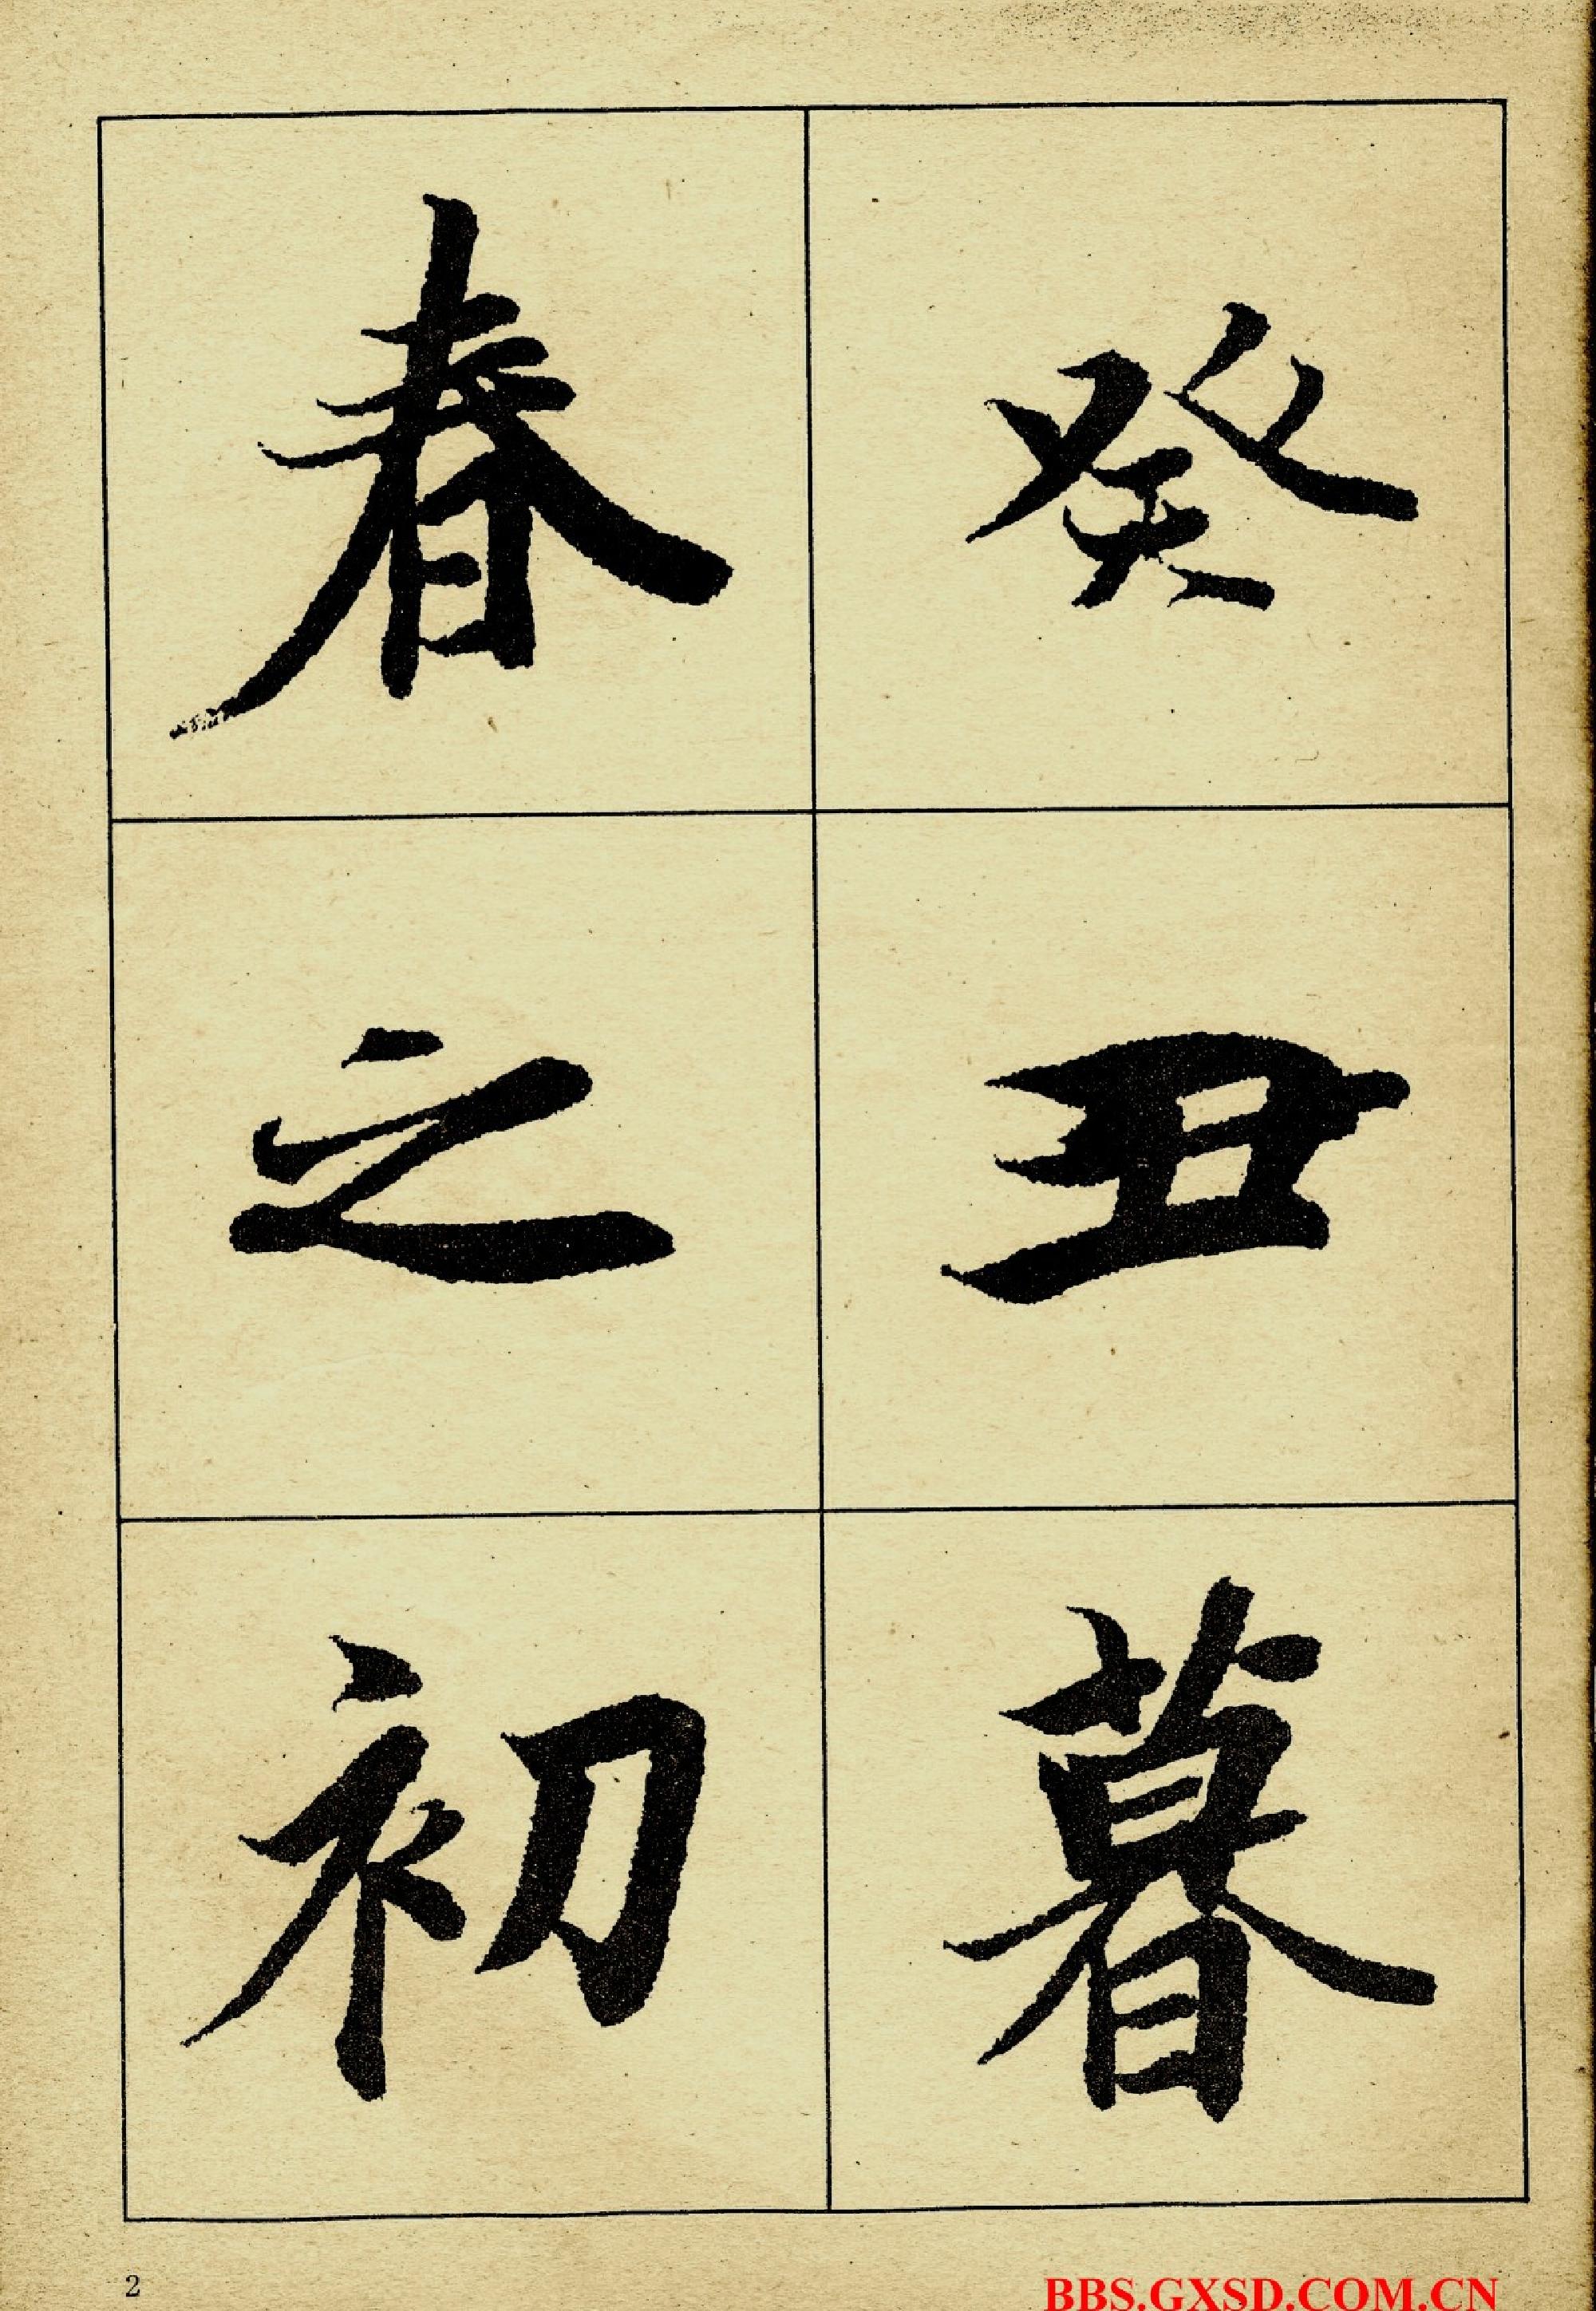 癸丑暮
春之初
2
BBS.GXSD.COM.CN